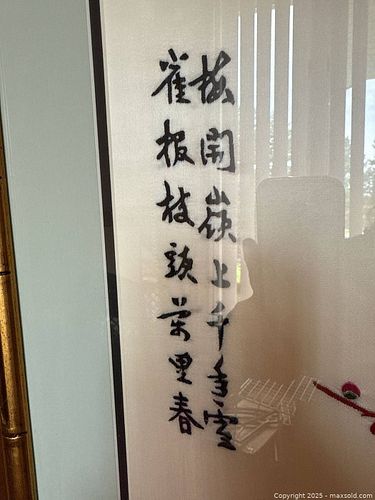 梅開嶺上千重雪
雀報枝頭萬里春
Copyright © 2025 - maxsold.com